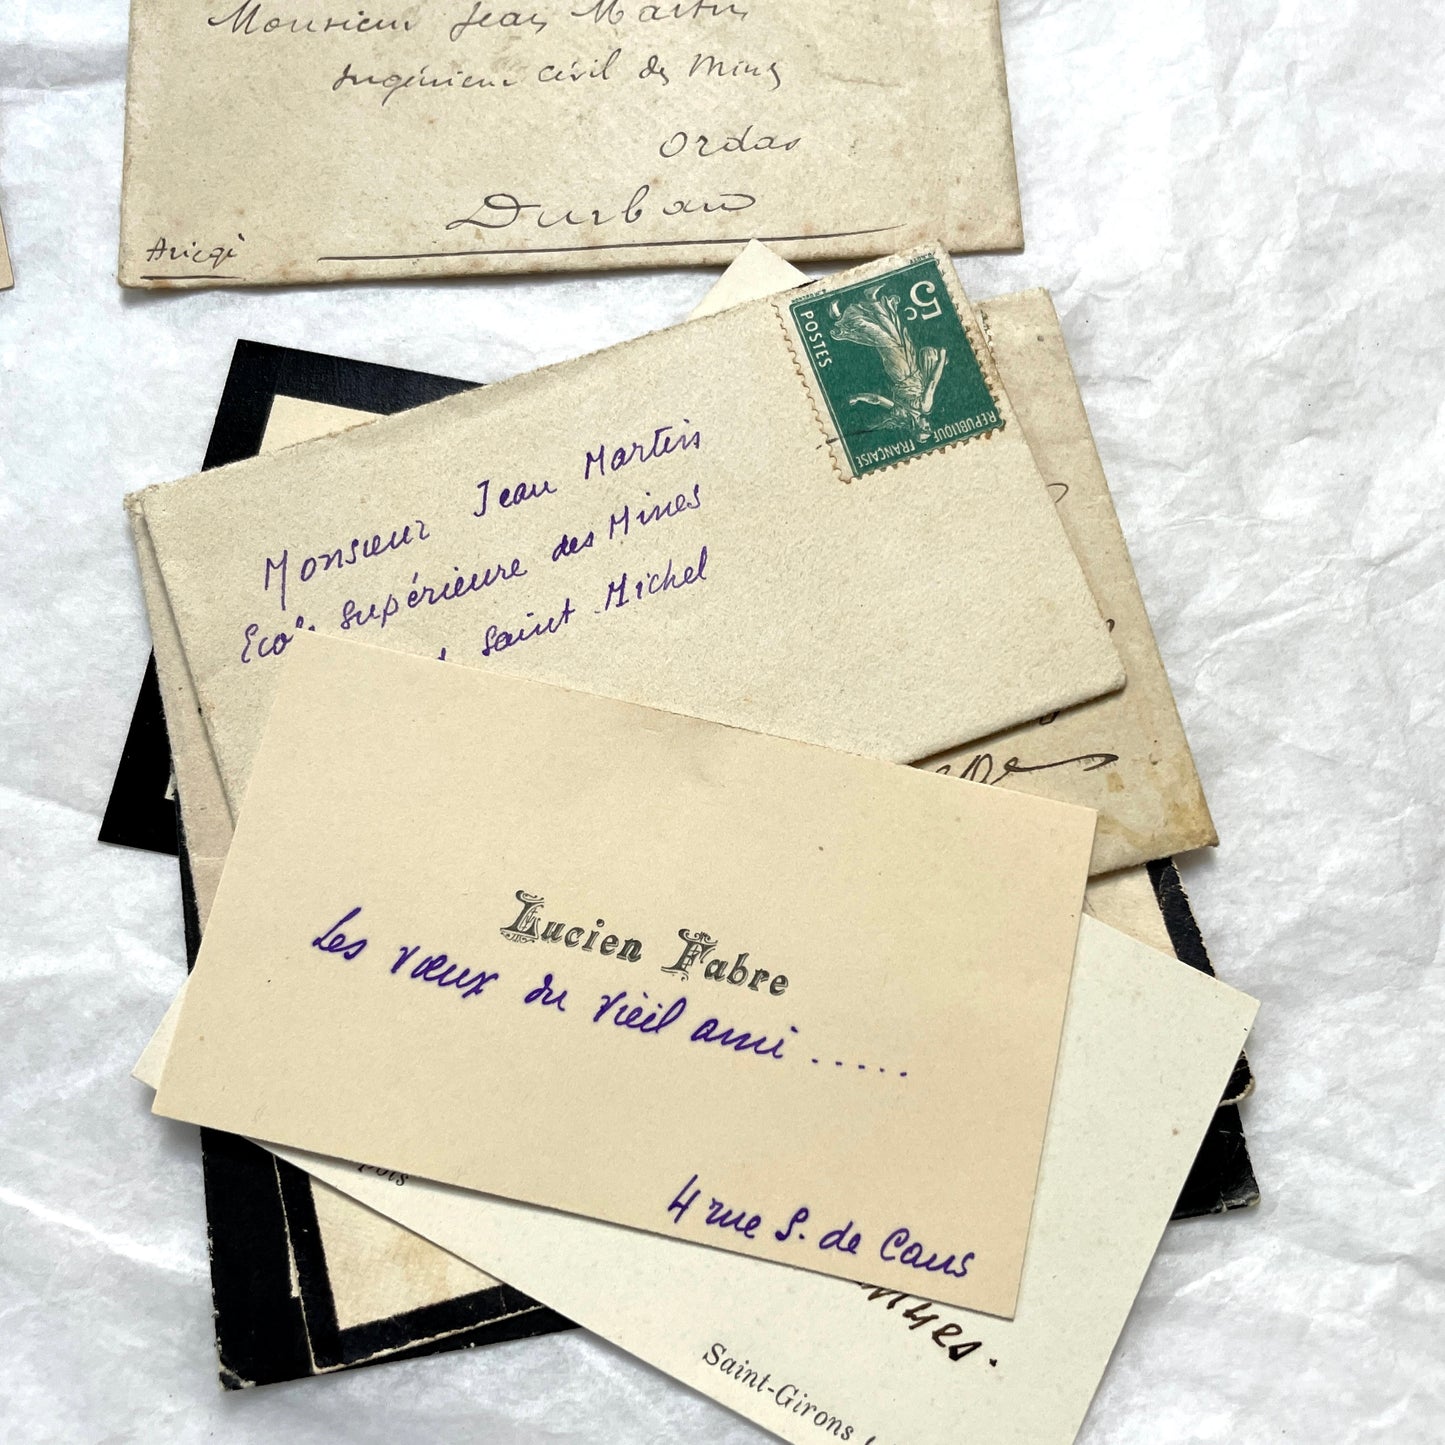 Monsieur Jean Martin
Ingénieur civil des Mines
Ordas
Durban
Ariège
5c
POSTES
REPUBLIQUE FRANÇAISE
Monsieur Jean Martin
Supérieure des Mines
Saint Michel
Lucien Fabre
Les vœux du vieil ami .....
4 rue S. de Caus
Saint-Girons